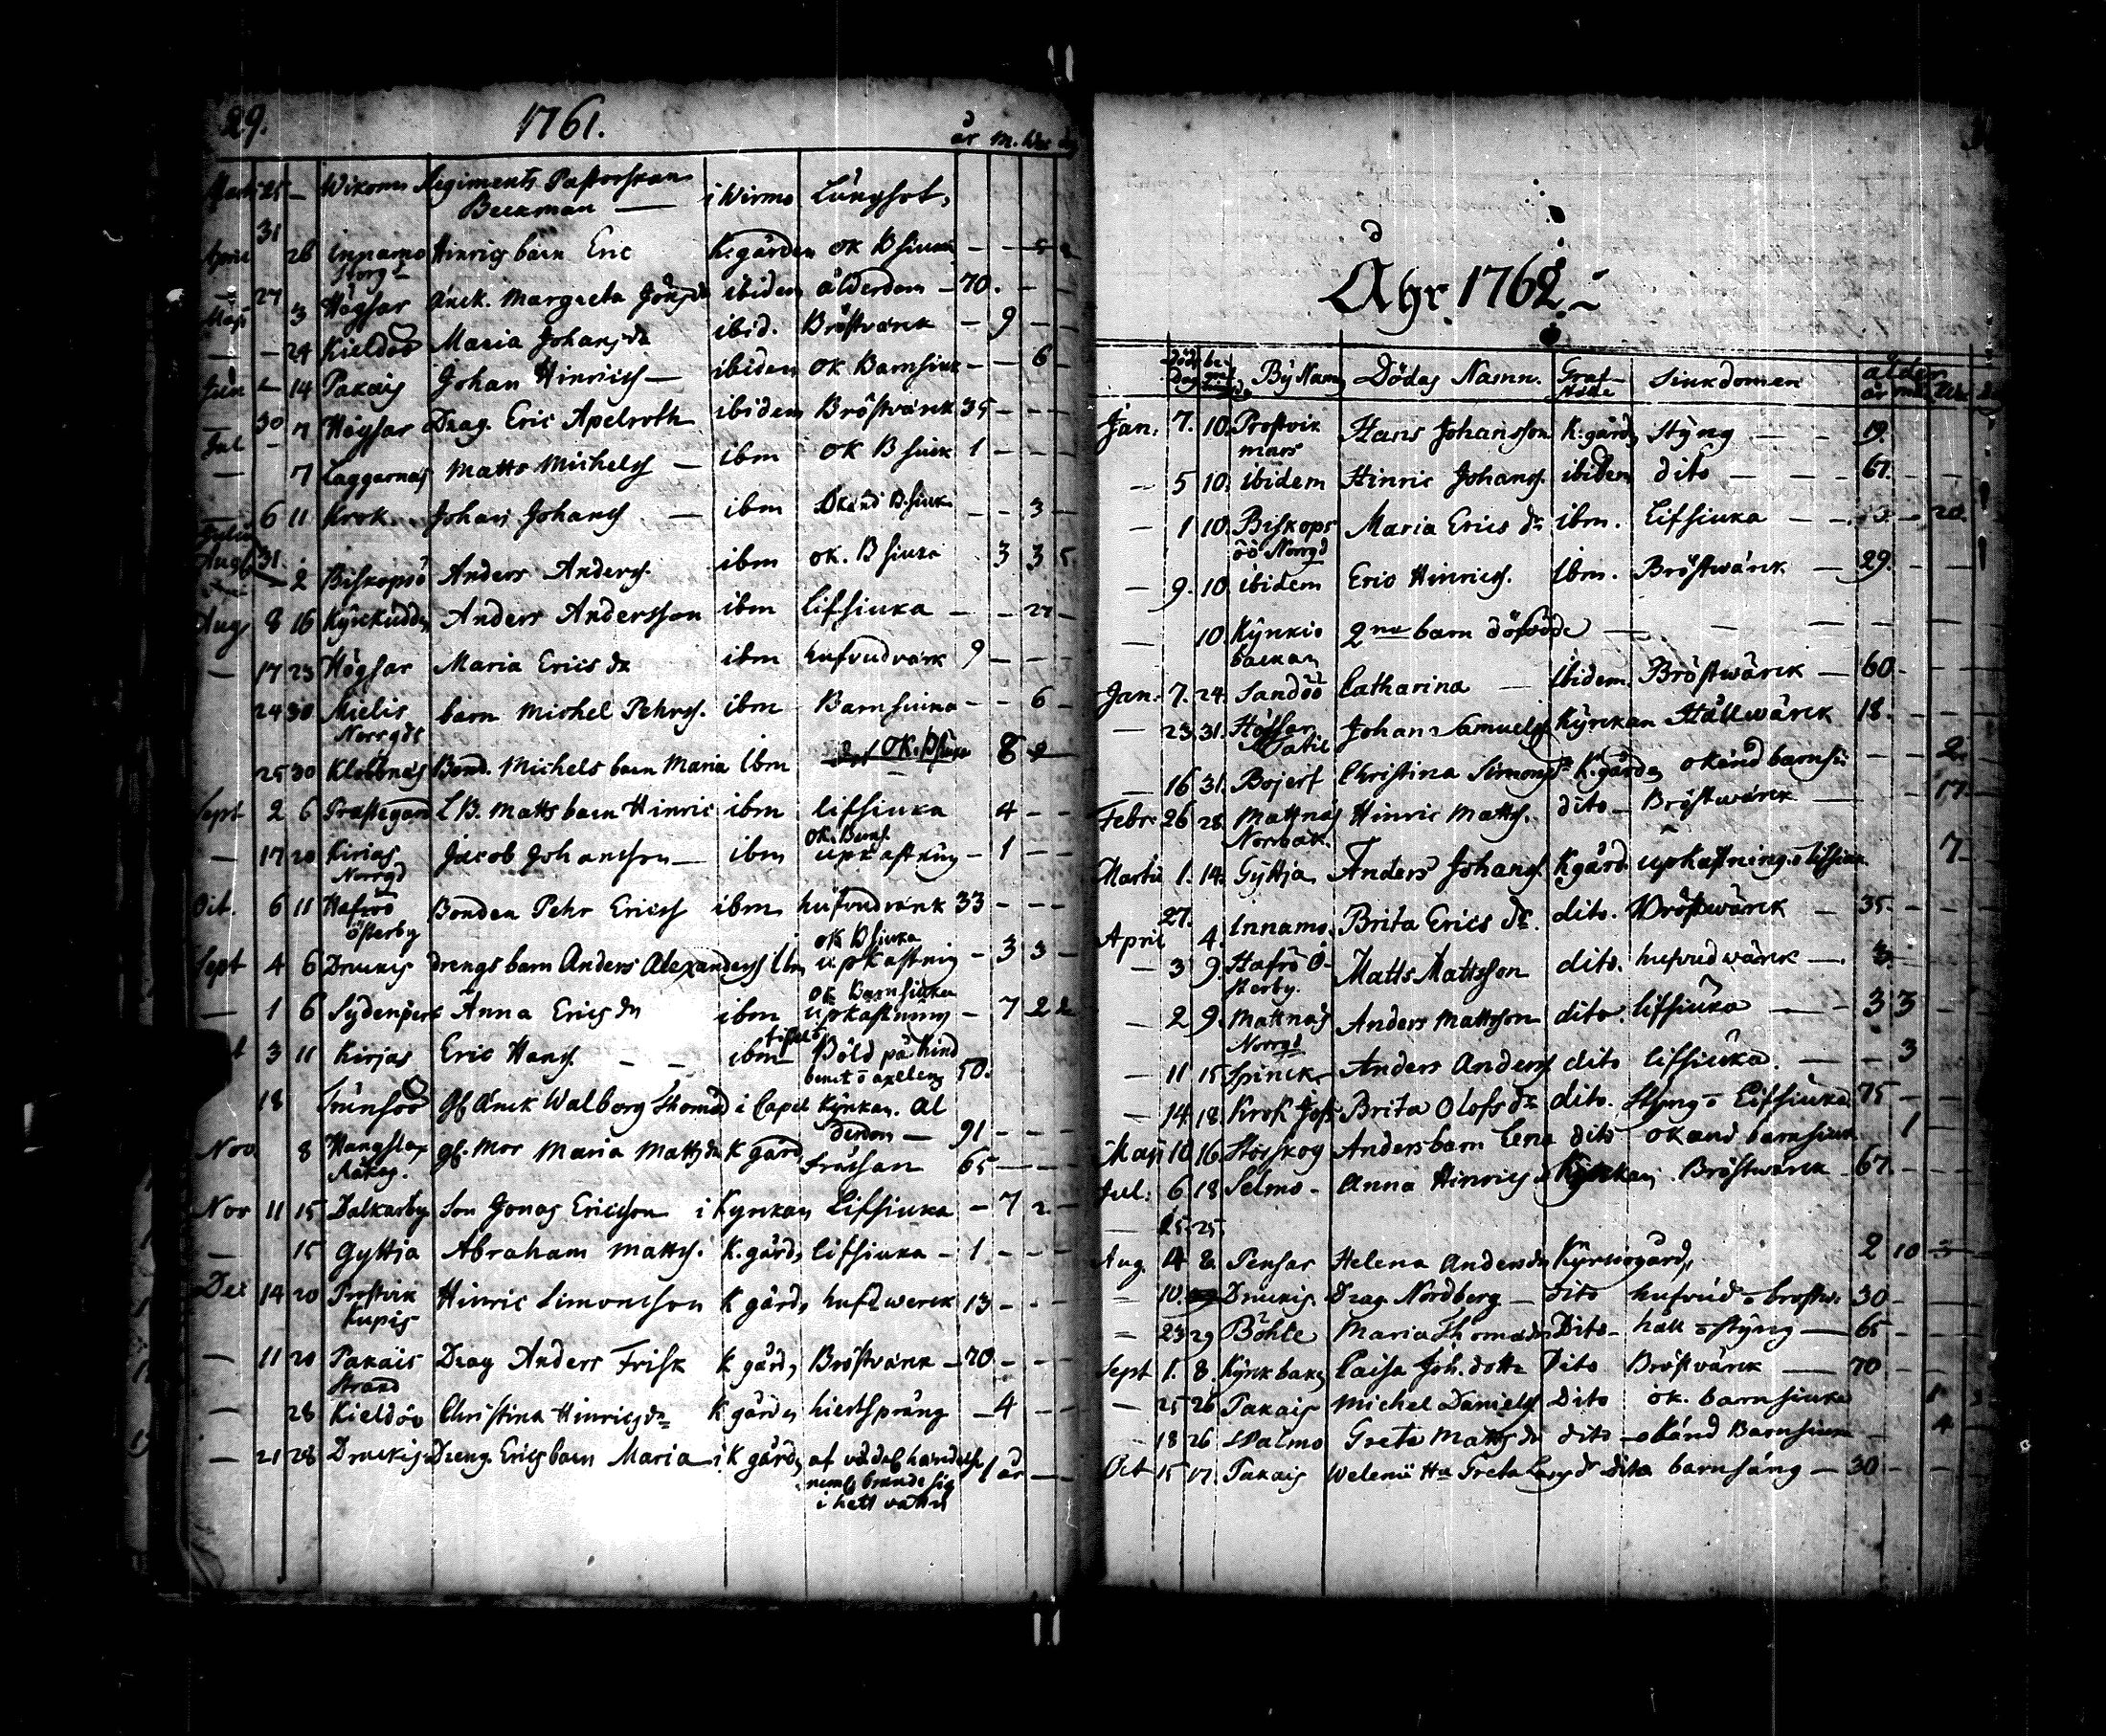 29. 1761.
år m. W dg
Mart 25 — Wikom Regiments Pastorskan
Beckman — i Wirmo Lungsot,
31
April 26 Innamo Hinrics barn Eric K:gården ok B siuka — — 5
Storgd
— 27
Maji 3 Högsar Änck. Margreta Jönsdr ibidem ålderdom — 70. — —
— — 24 Kieldöö Maria Johansdr ibid. Bröstvärck — 9 — —
Jun — 14 Pakais Johan Hinrics — ibidem ok Barnsiuk — — 6 —
— 30 7 Högsar Drag. Eric Apelroth ibidem Bröstvärck 35 — — —
Jul —
— 7 Laggarnäs Matts Michels — ibm ok B siuk 1 — — —
— 6 11 Krok Johan Johans — ibm Okänd B.siuk — — 3 —
Julii
Aug 31. 2 Biskopsö Anders Anders. ibm ok. B siuka 3 3 5
Aug 8 16 Kyrckudden Anders Andersson ibm lifsiuka — — 21 —
— 17 23 Högsar Maria Erics dr ibm hufvudvärk 9 — — —
24 30 Mielis barn Michel Pehrs. ibm Barnsiuka — — 6 —
Norrgds
25 30 Klobbnäs Bond. Michels barn Maria ibm ok. B siuka 8 2
Sept 2 6 Prästegård L B. Matts barn Hinric ibm lifsiuka 4 — —
— 17 20 Kirias Jacob Johansson — ibm ok. Barns.
upkastning — 1 — —
Norrgd
Oct. 6 11 Hafröö Bonden Pehr Erics ibm hufvudvärk 33 — — —
österby
Sept 4 6 Druckis Drengs barn Anders Alexanders ibm ok B siuka
upkastnig — 3 3 —
— 1 6 Sydenpert Anna Erics dr ibm ok Barnsiuka
upkastning — 7 2 2
3 11 Kirjas Eric Hans. — — ibm Böld på kind
benet o axlens 50.
18 Trunsöö Gl Änck Walborg Thomsd i Capel kyrkan. Ål
derdom — 91 — — —
Nov 8 Hangslax gl. Mor Maria Mattsdr K gård, Fråssan 65 — — —
Nov 11 15 Dalkarby Son Jonas Ericsson i Kyrckan Lifsiuka — 7 2 —
— 15 Gyttja Abraham Matts. K. gård, lifsiuka — 1 — — —
Dec 14 20 Prostvik Hinric Simonsson K gård, hufdwerck 13 — — —
Kupis
— 11 20 Pakais Drag Anders Frisk K gård, Bröstvärck — 70 — — —
Strand
— 28 Kieldöö Christina Hinricsdr K gården hiertsprång — 4 — —
— 21 28 Druckis Dreng Erics barn Maria i K gård, af vådel. händelse 1 år — —
neml. brände sig
i hett vatten
Åhr 1762
Död Dag be gr By Namn Dödas Namn. Graf- Siukdomen ålder
ställe år mån W
Jan. 7. 10. Prostvik Hans Johansson K:gård, Styng — — 19.
mars
— 5 10. ibidem Hinric Johans. ibidem dito — — — 67. — — —
— 1 10. Biskops Maria Erics dr ibm. Lifsiuka — — — 20.
öö Norrgd
— 9. 10 ibidem Eric Hinrics. ibm. Bröstwärck — 29. — —
— 10. Kyrckio 2ne barn dödfödde — — — —
backan
Jan. 7. 24. Sandöö Catharina — ibidem. Bröstwärck — 60 — — —
— 23. 31. Högsar Johan Samuels Kyrckan Hållwärck 18. — — —
— 16 31. Bojert Christina Simonsdr K.gården okänd barnsi: — — 2.
Febr. 26 28 Mattnäs Hinric Matts. dito — Bröstwärck — — 17.
Norrbak.
Martii 1. 14. Gyttja Anders Johans. Kgård. upkastning. o lifsiuk 7.
27.
April 4. Innamo Brita Erics dr. dito. Bröstwärck — 35. — — —
— 3 9. Hafrö Ö- Matts Mattsson dito. hufvudwärck — 3. —
sterby.
— 2 9. Mattnäs Anders Mattsson dito. lifsiuka — 3 3 —
Norrgd
— 11 15 Spinck- Anders Anders dito lifsiuka. — — 3
— 14 18. Krok Brita Olofs dr dito. Styng o Lifsiuka 75 — —
Maji 10 16 Storskog Anders barn Lena dito okänd barnsiuk 1 —
Jul. 6 18 Selmo — Anna Hinrics dr Kyrckan Bröstwärck 67. — — —
— 25. 25.
Aug. 4 8. Pensar Helena Anders dr Kyrckogård, 2 10 3
= 10. Druckis. Drag Nordberg — Dito hufvud o bröstw. 30 —
= 23 29 Böhle Maria Thomasdr Dito — håll o styng — 65 —
Sept 1. 8. Kyrkback Caisa Joh. dottr Dito Bröstvärck — 70 —
— 25 26 Pakais Michel Daniels Dito ok. barnsiuka 1
— 18 26 Palmo Greta Mattsdr dito — okänd Barnsiuk — 4 —
Oct 15 17. Pakais Greta dito barnsäng — 30 — —